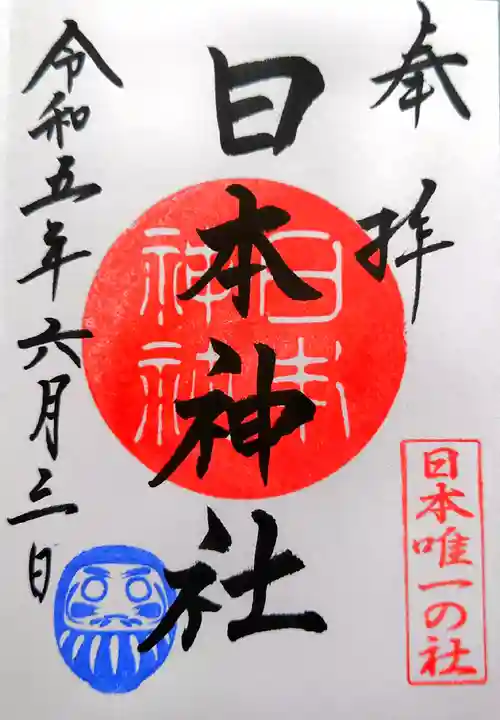 奉拝
日本唯一の社
日本神社
令和五年六月三日